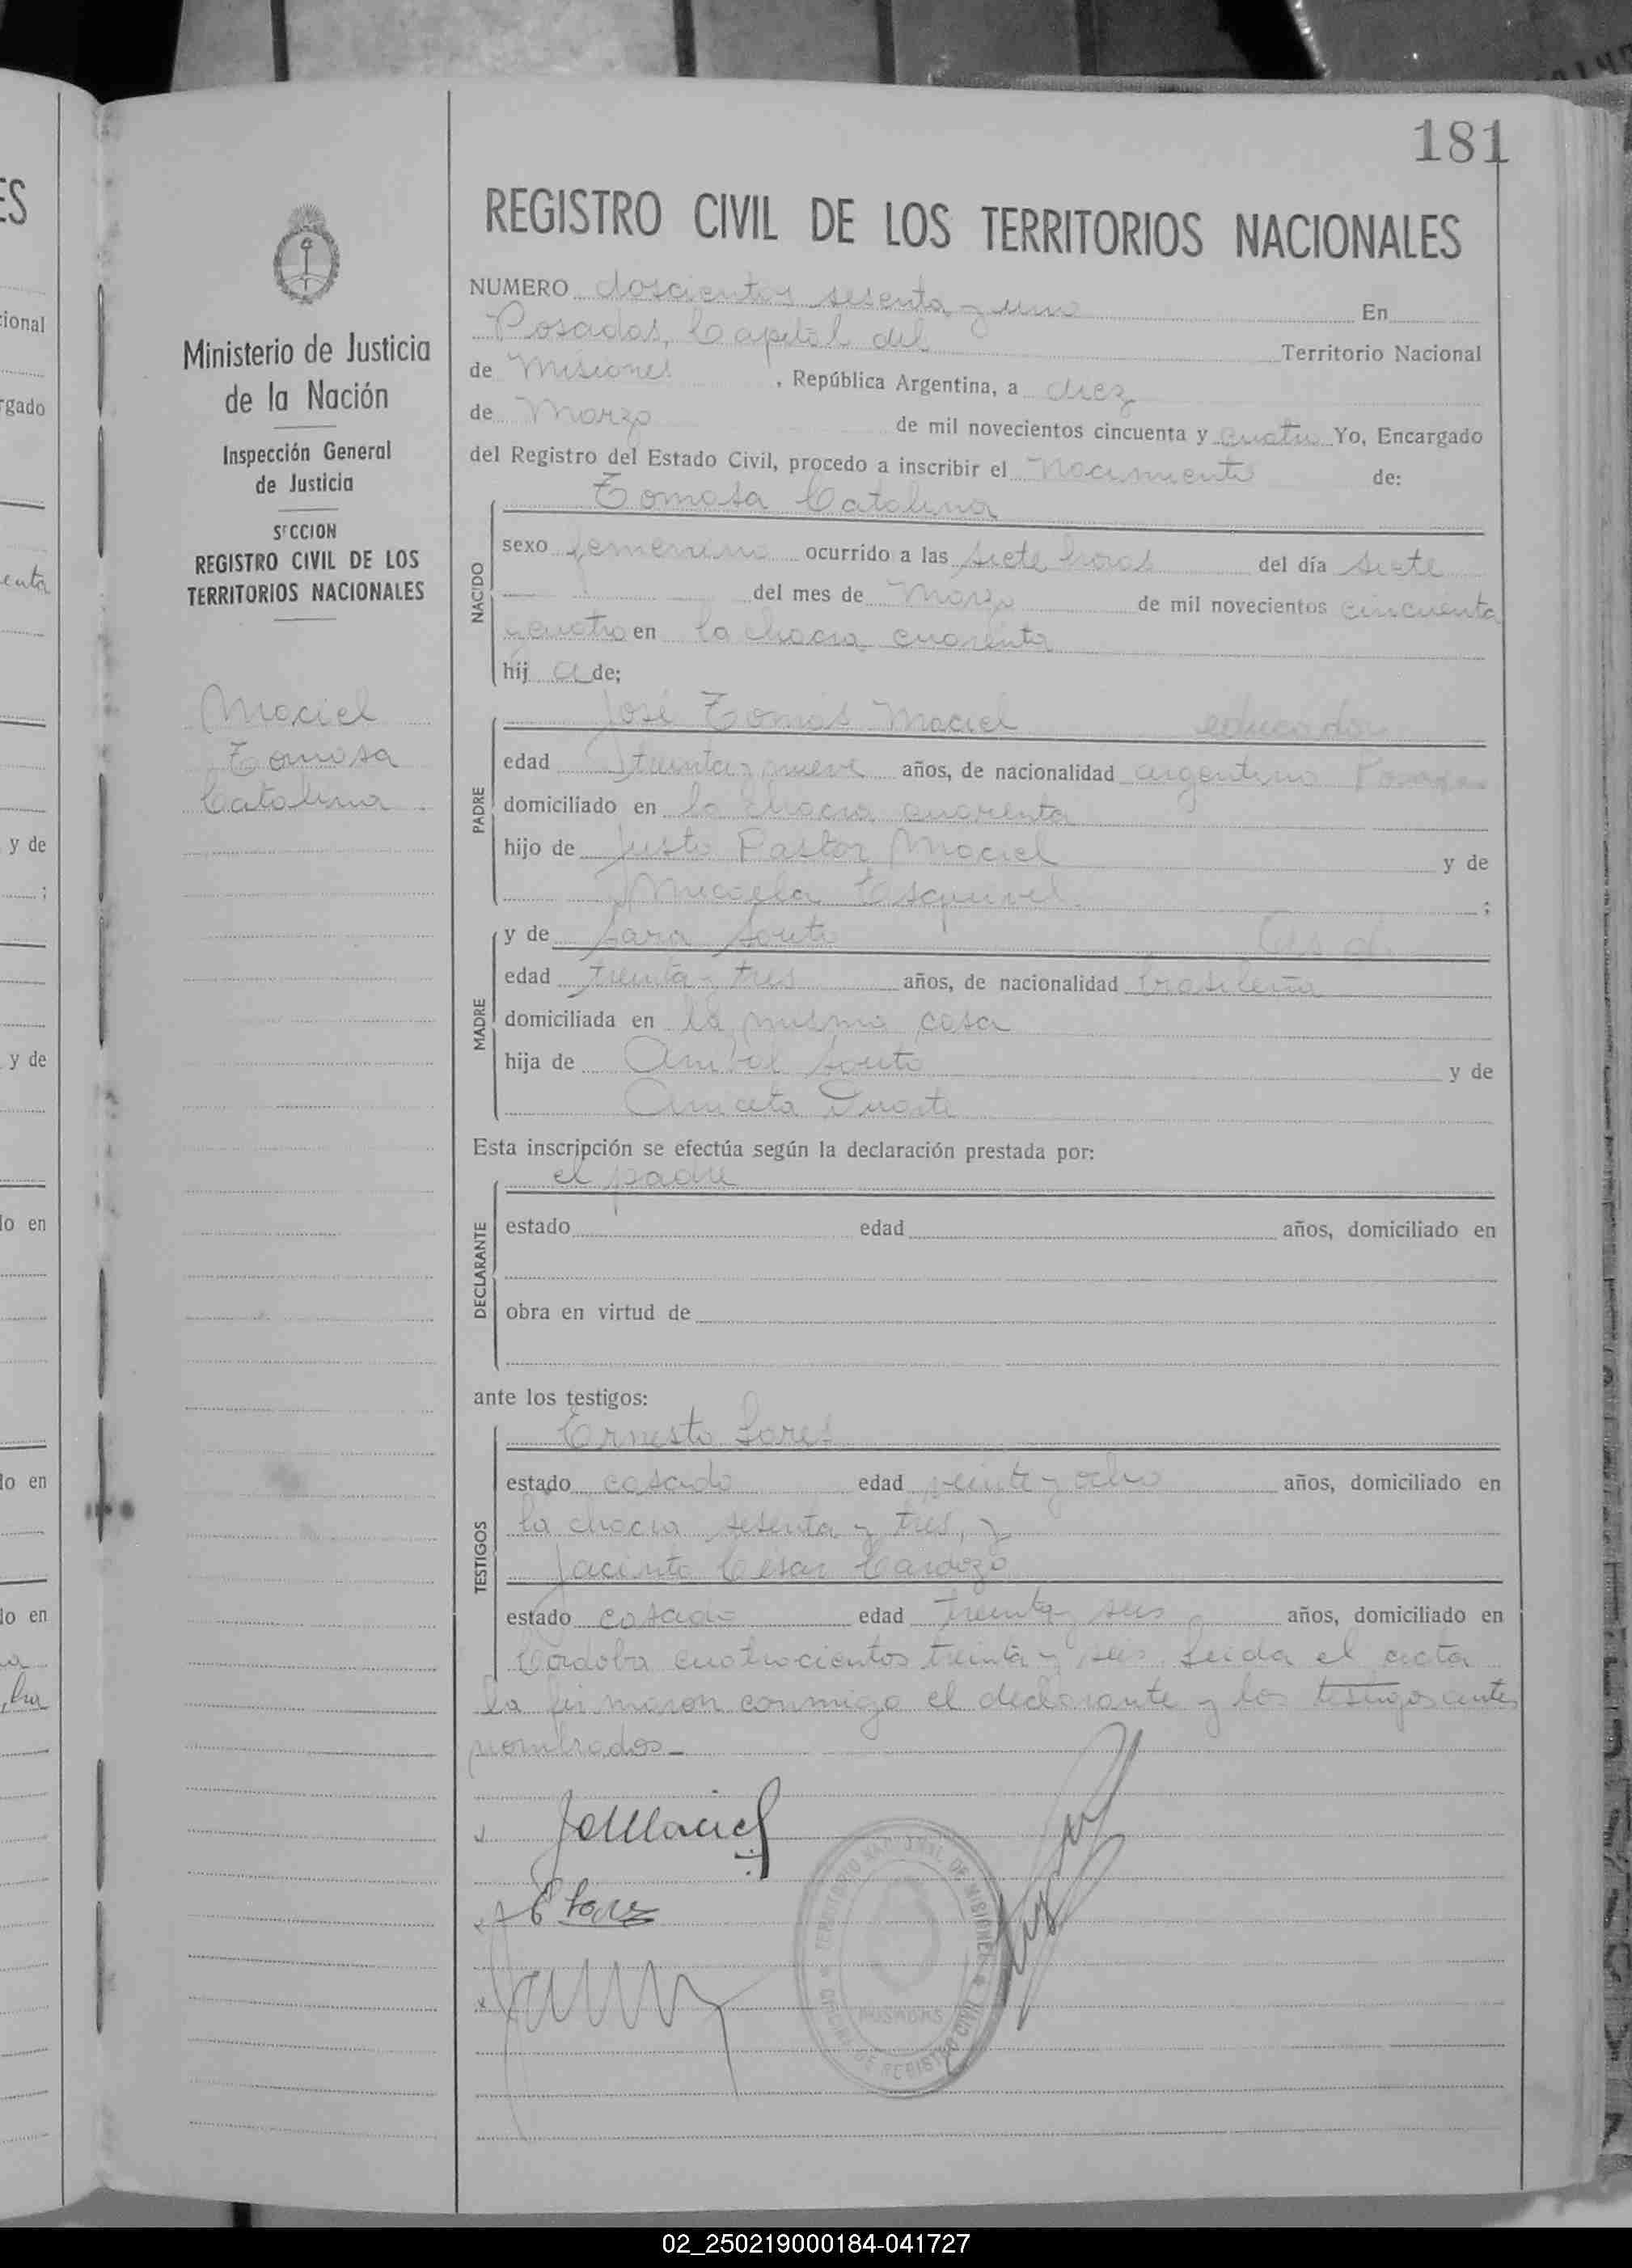 181
REGISTRO CIVIL DE LOS TERRITORIOS NACIONALES
Ministerio de Justicia
de la Nación
Inspección General
de Justicia
SECCION
REGISTRO CIVIL DE LOS
TERRITORIOS NACIONALES
Maciel
Tomasa
Catalina
NUMERO doscientos sesenta y uno En
Posadas, Capital del Territorio Nacional
de Misiones, República Argentina, a diez
de Marzo de mil novecientos cincuenta y cuatro Yo, Encargado
del Registro del Estado Civil, procedo a inscribir el Nacimiento de:
Tomasa Catalina
NACIDO
sexo femenino ocurrido a las siete horas del día siete
del mes de Marzo de mil novecientos cincuenta
y cuatro en la chacra cuarenta
hij a de;
PADRE
José Tomás Maciel educador
edad treinta y nueve años, de nacionalidad argentino Posadas
domiciliado en la chacra cuarenta
hijo de Justo Pastor Maciel y de
Micaela Esquivel ;
MADRE
y de Sara Souto
edad treinta y tres años, de nacionalidad brasileña
domiciliada en la misma casa
hija de Anibal Souto y de
Aniceta Duarte
Esta inscripción se efectúa según la declaración prestada por:
el padre
DECLARANTE
estado edad años, domiciliado en
obra en virtud de
ante los testigos:
TESTIGOS
Ernesto Lares
estado casado edad veinte y ocho años, domiciliado en
la chacra sesenta y tres, y
Jacinto César Cardozo
estado casado edad treinta y seis años, domiciliado en
Córdoba cuatrocientos treinta y seis. Leida el acta
la firmaron conmigo el declarante y los testigos antes
nombrados
JoMaciel
E Lares
TERRITORIO NACIONAL DE MISIONES
POSADAS
REGISTRO CIVIL
ES
cional
rgado
enta
y de
;
y de
do en
do en
do en
02_250219000184-041727